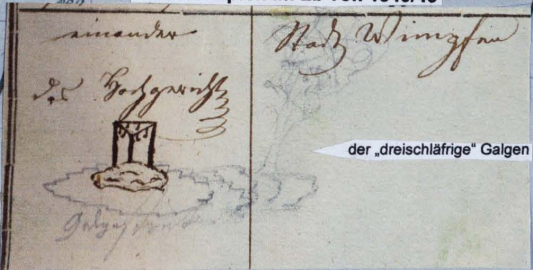 einander
Stadt Wimpfen
das Hochgericht
der „dreischläfrige“ Galgen